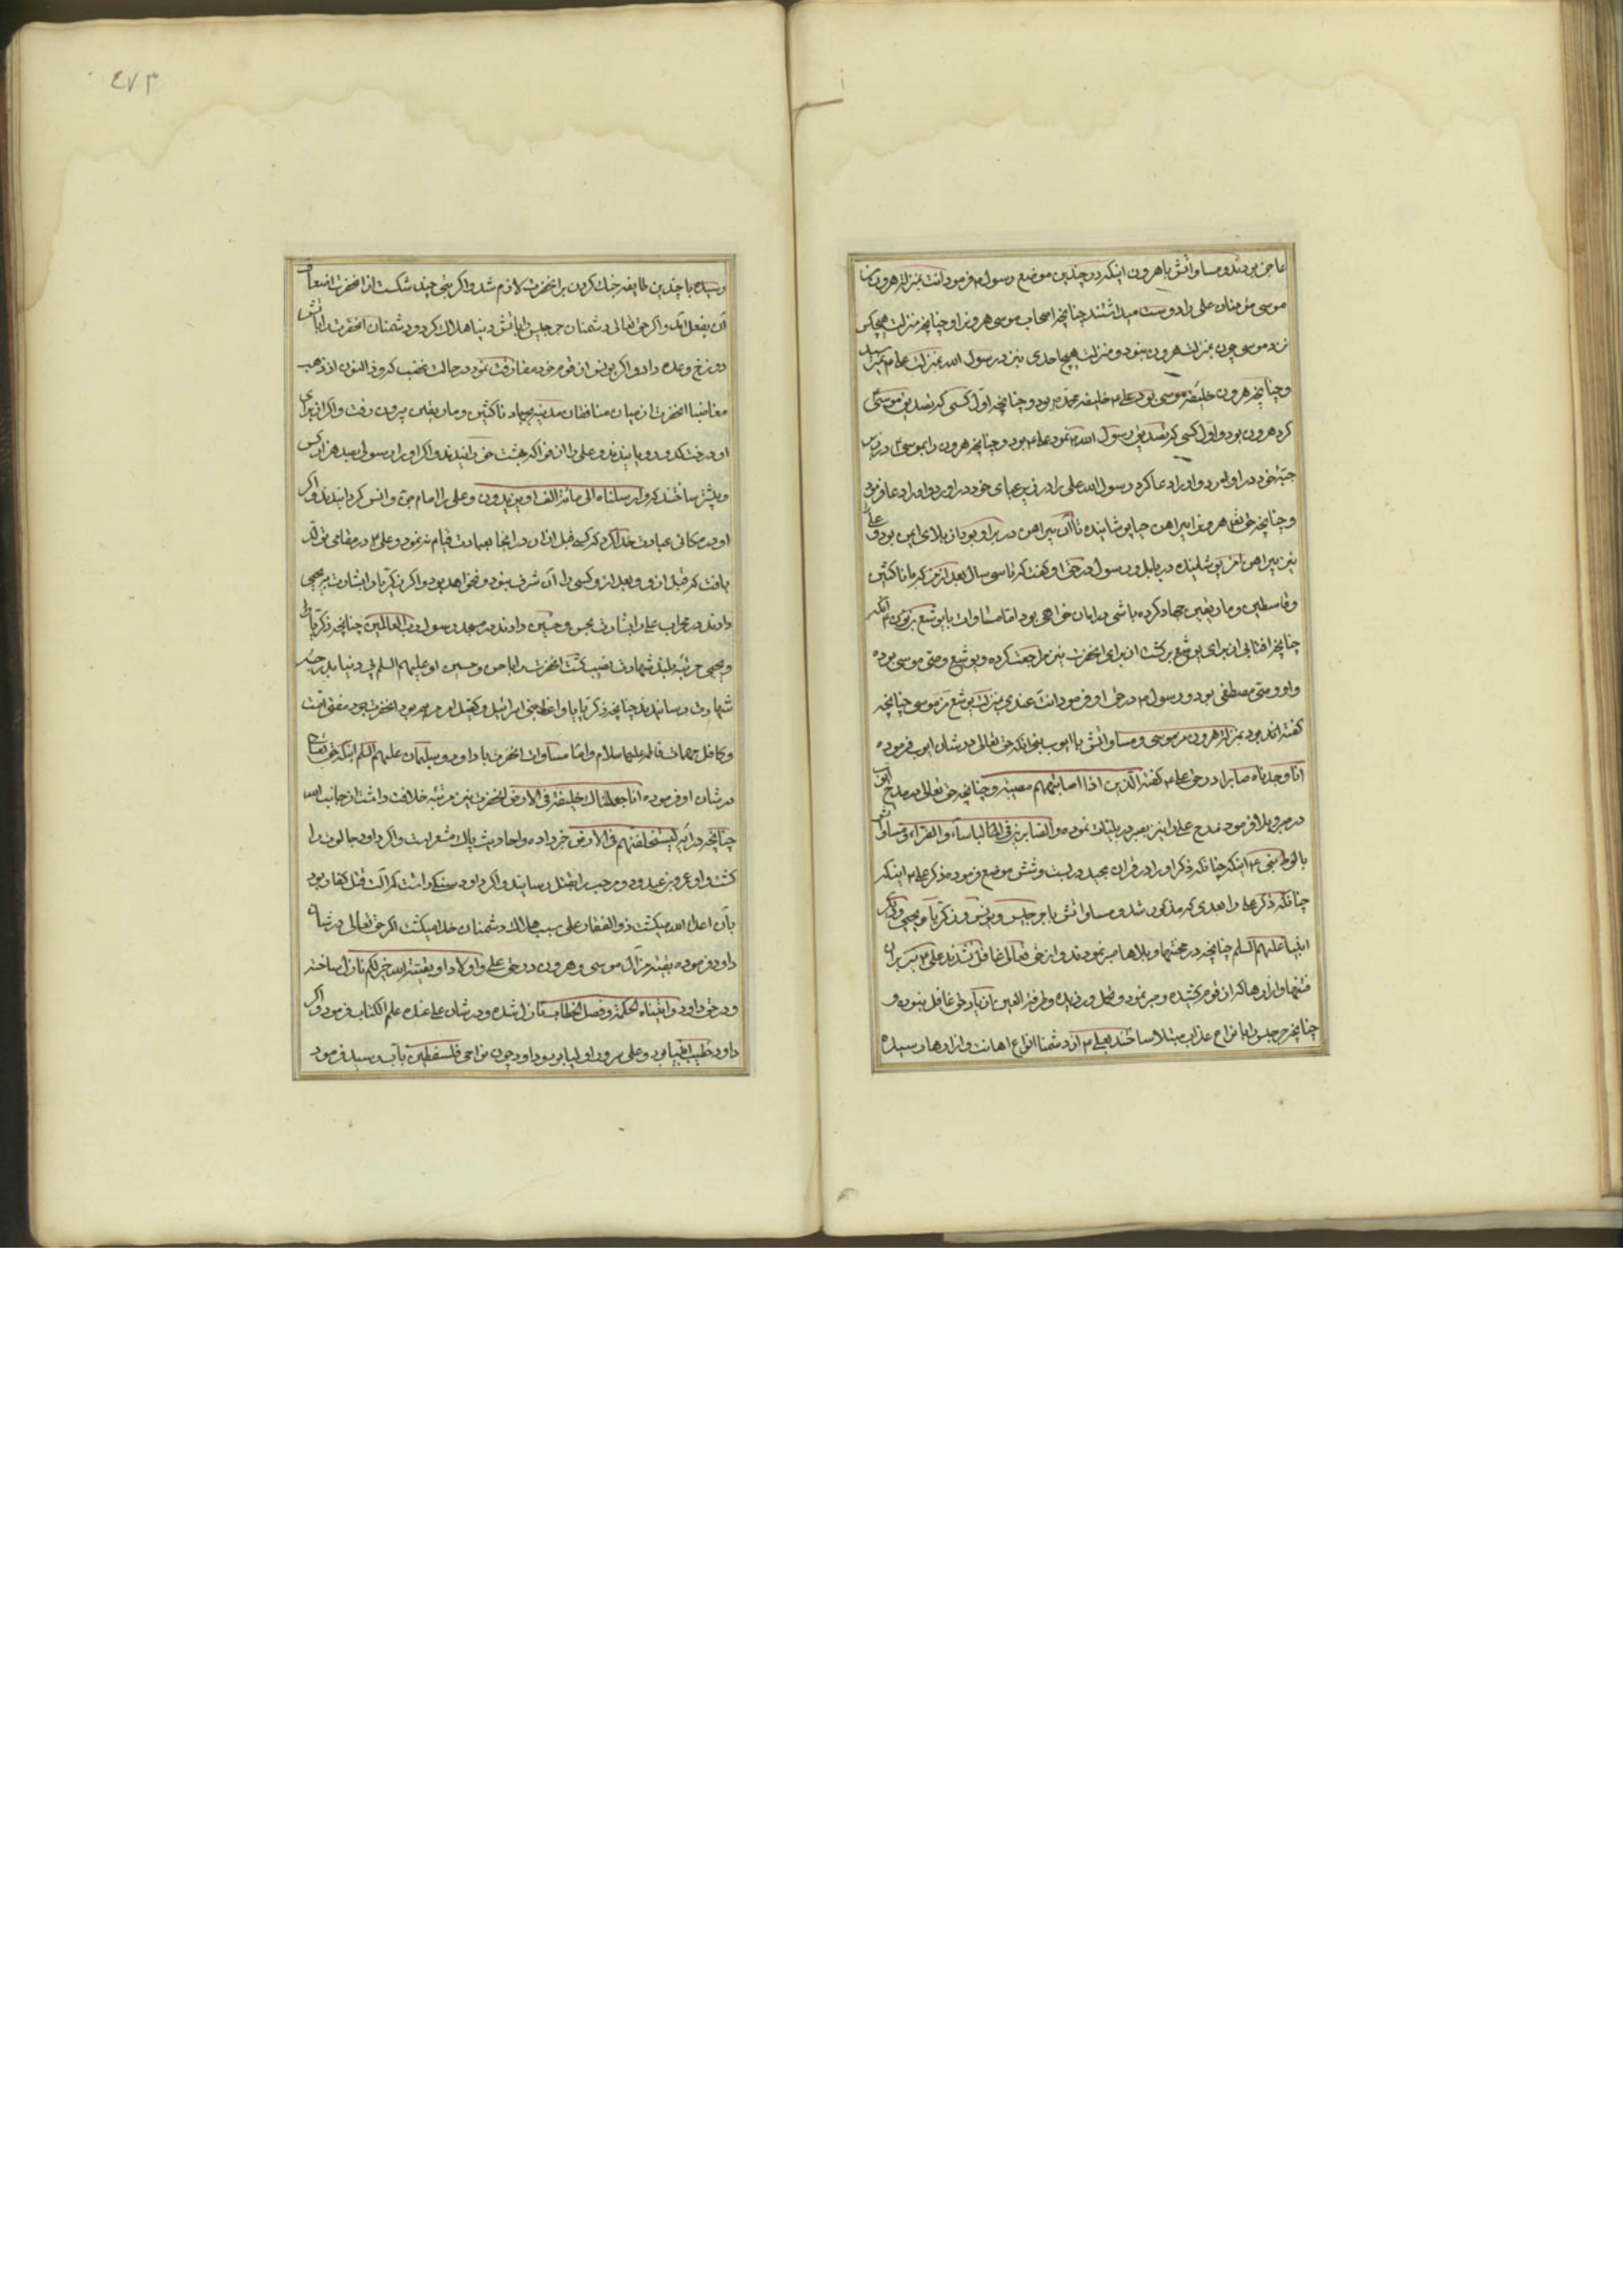 عاجز بودند و مساواتش باهرون اینکه در چندین موضع رسول م فرمود انت بمنزلة هرون من
موسی مؤمنان علی را دوست میداشتند چنانچه اصحاب موسی هرون را و چنانچه منزلت هیچکس
نزد موسی چون بمنزلت هرون نبود و منزلت هیچ احدی نیز در رسول الله بمنزلت علی م نمیرسید
و چنانچه هرون خلیفه موسی بود علی م خلیفه محمد م بود و چنانچه اول کسی که تصدیق موسی
کرد هرون بود و اول کسی که تصدیق رسول الله م نمود علی م بود و چنانچه هرون را موسی م در زیر
جبّه خود در اورد و او را دعا کرد رسول الله علی را در زیر عبای خود در اورد و او را دعا فرمود
و چنانچه حقتعالی هرون را پیراهن حیا پوشانیده تا آن پیراهن در بر او بود از بلا ای ایمن بود و علی
نیز پیراهن امن پوشانیده در بابل و رسول در حق او گفت که تا سی سال بعد از من که با ناکثین
و قاسطین و مارقین جهاد کرده باشی در امان خواهی بود اما مساوات با یوشع بن نون م انکه
چنانچه افتابی از برای یوشع برگشت از برای انحضرت نیز مراجعت کرده و یوشع وصی موسی بوده
و او وصی مصطفی بود و رسول م در حق او فرمود انت عندی بمنزلت یوشع من موسی چنانچه
گفته اند بود بمنزلة هرون من موسی و مساواتش با ایوب نبی انکه حق تعالی در شان ایوب فرموده
انا وجدناه صابرا و در حق علی م گفته الذین اذا اصابتهم مصیبة و چنانچه حق تعالی در مدح ایوب
در صبر و بلا فرمود مدح علی را نیز بصبر در بلیات نموده و الصابرین فی البأساء و الضراء و مساواتش
با لوط نبی م اینکه چنانکه ذکر او را در قران مجید در بیست و شش موضع فرموده ذکر علی م اینکه
چنانکه ذکر علی را بعدی که مذکور شد و مساواتش با جرجیس و یونس و زکریا و یحیی و دیگر
انبیا علیهم السلم چنانچه در محنتها و بلاها صبر نمودند و از حق تعالی غافل نشدند علی م نیز بران
فتنها و ازارها که از قوم کشیده و صبر نمود و تحمل ورزیده و طرفة العین از یاد حق غافل نبوده و
چنانچه جرجیس را بانواع عذاب مبتلا ساختند بعلی م از دشمنا انواع اهانت و ازارها رسیده
٤٧٣
رسیده با چندین طایفه جنک کردن بر انحضرت لازم شد و اکر بتی چند شکست از انحضرت
آن بفعل آمد و اکر حق تعالی دشمنان جرجیس را باتش دنیا هلاک کرد و دشمنان انحضرت را باتش
دوزخ وعده داد و اکر یونس از قوم خود مفارقت نمود در حالت غضب که و ذا النون اذ ذهب
مغاضبا انحضرت از میان منافقان مدینه بجهاد ناکثین و مارقین بیرون رفت و اکر از برای
او درخت کدو رویانیدند و علی را
و بیشتر ساختند که و ارسلناه الی مائة الف او یزیدون و علی را امام جن و انس کردانیدند و اکر
او در مکانی عبادت خدا کرد که کسی قبل ازان در انجا بعبادت قیام ننمود و علی م در مقامی تولد
یافت که قبل از و و بعد از و کسی را آن شرف نبود و نخواهد بود و اکر زکریا را بشارت به یحیی
دادند در محراب علی را بشارت بحسن و حسین دادند در مسجد رسول رب العالمین چنانچه زکریا را
و یحیی مرتبه بلند شهادت نصیب کشت انحضرت را با حسن و حسین او علیهم السلم فی دنیا بدرجه
شهادت رسانیدند چنانچه زکریا پا واعظ بنی اسرائیل و کفیل امر مریم بود انحضرت هم مفتی امت
و کافل مهمات فاطمه علیها سلام و اما مساوات انحضرت با داود و سلیمان علیهم السلم اینکه حق تعالی
در شان او فرموده انا جعلناك خلیفة فی الارض انحضرت نیز مرتبه خلافت داشت از جانب الله
چنانچه در آیه لیستخلفنهم فی الارض خبر داده و احادیث باک مشعر است و اکر داود جالوت را
کشت و او عمرو بن عبدود و مرحب را بقتل رسانید و اکر داود سنکی داشت که آلت قتل کفار بود
بآن اعداء الله میکشت ذو الفقار علی سبب هلاک دشمنان خدا میکشت اکر حق تعالی در شان
داود فرموده بقیة من آل موسی و هرون در حق علی و اولاد او بقیة الله خیر لکم نازل ساخته
و در حق داود و اتیناه الحکمة و فصل الخطاب نازل شده و در شان علی عنده علم الکتاب فرمود و اکر
داود خطیب انبیا بود و علی سرور اولیا بود و داود چون نواحی فلسطین بآب رسید فرمود